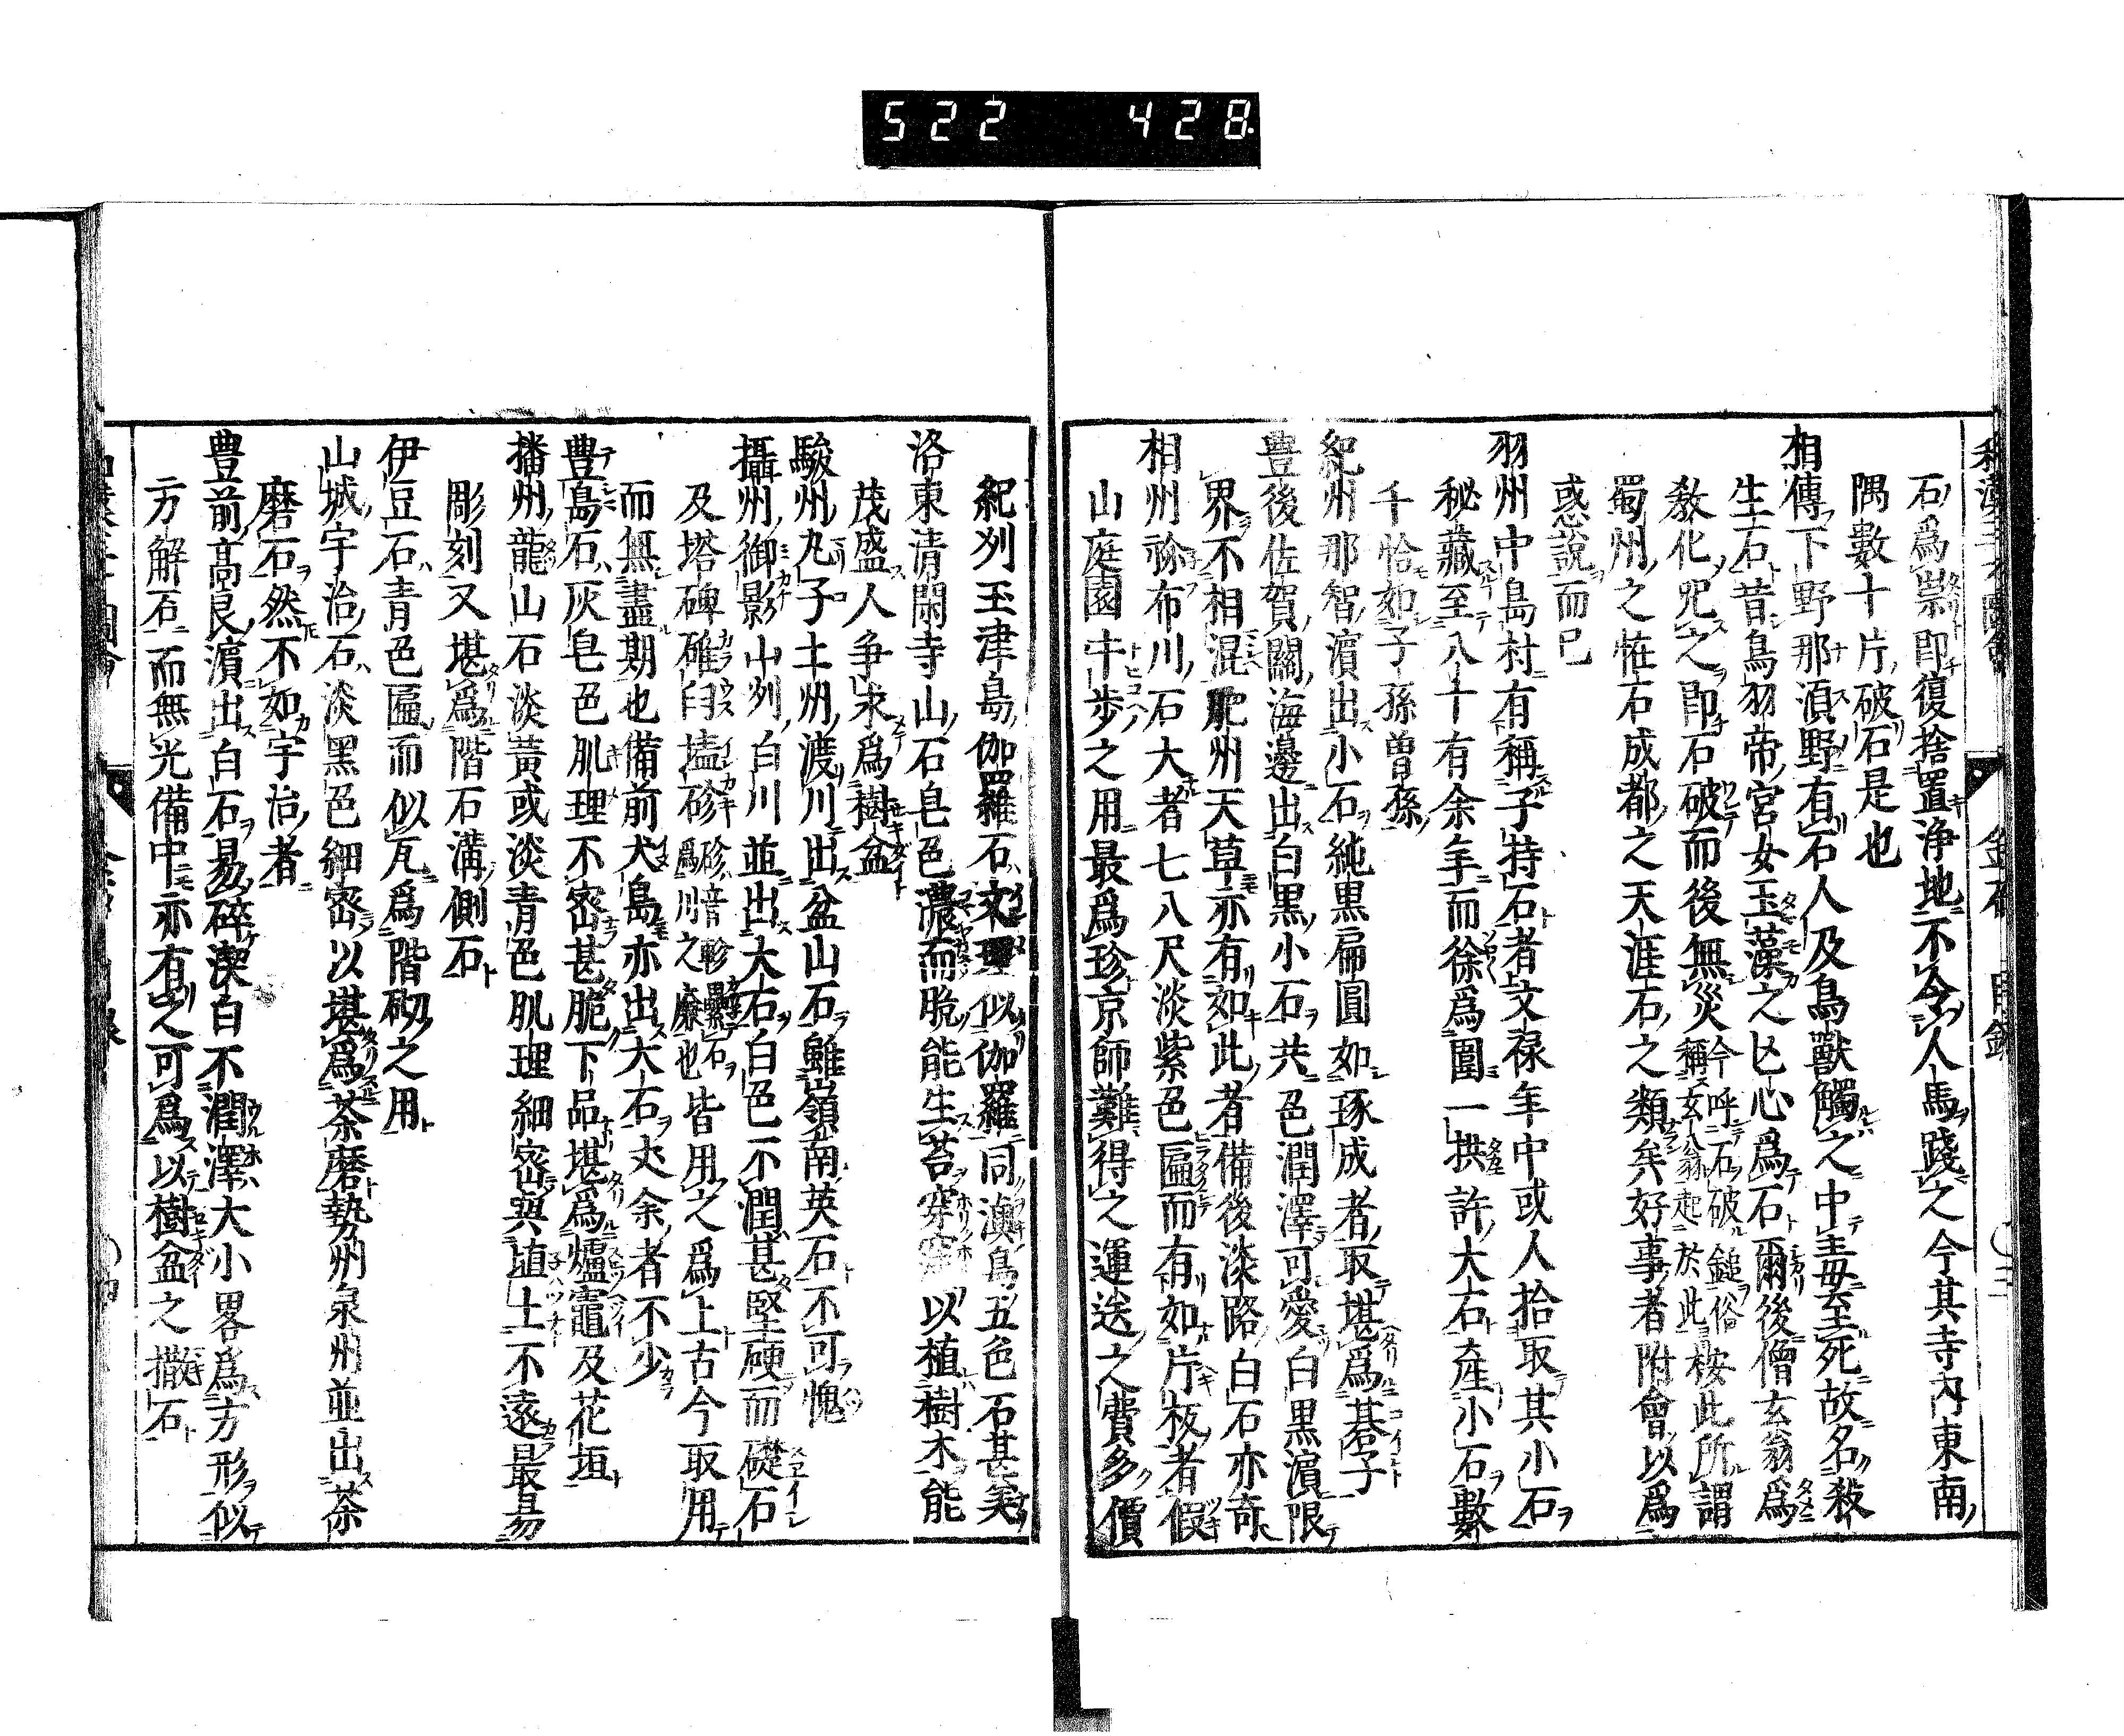 522 428
石爲祟即復捨置浄地不令人馬踐之今其寺內東南
隅數十片破石是也
相傳下野那須野有石人及鳥獸觸之中毒至死故名殺
生石昔鳥羽帝宮女玉藻之亡心爲石爾後僧玄翁爲
教化咒之即石破而後無災今呼石破鎚俗稱玄翁起於此桉此所謂
蜀州之恠石成都之天涯石之類矣好事者附會以爲
惑說而已
羽州中島村有稱子持石者文祿年中或人拾取其小石
秘藏至八十有余年而徐爲圍一拱許大石産小石數
千恰如子孫曽孫
紀州那智濵出小石純黒扁圓如琢成者取堪爲碁子
豊後佐賀關海邊出白黒小石共色潤澤可愛白黒濵限
界不相混肥州天草亦有如此者備後淡路白石亦奇
相州祢布川石大者七八尺淡紫色匾而有如片板者假
山庭園牛歩之用最爲珍京師難得之運送之費多價
紀刕玉津島伽羅石文理似伽羅同漁島五色石甚美
洛東清閑寺山石皂色濃而脆能生苔穿窪以植樹木能
茂盛人争求爲樹盆
駿州丸子土州渡川出盆山石雖嶺南英石不可愧
攝州御影山刕白川並出大石白色不潤甚堅硬而礎石
及塔碑碓臼搕碜皆用之爲上古今取用
而無盡期也備前犬島亦出大石丈余者不少
豊島石灰皂色肌理不密甚脆下品堪爲爐竈及花垣
播州龍山石淡黃或淡青色肌理細密與埴土不遠最昜
彫刻又堪爲階石溝側石
伊豆石青色匾而似瓦爲階砌之用
山城宇治石淡黑色細密以堪爲茶磨勢州泉州並出茶
磨石然不如宇治者
豊前高良濵出白石易碎潔白不潤澤大小畧爲方形似
方解石而無光備中亦有之可爲以樹盆之撒石